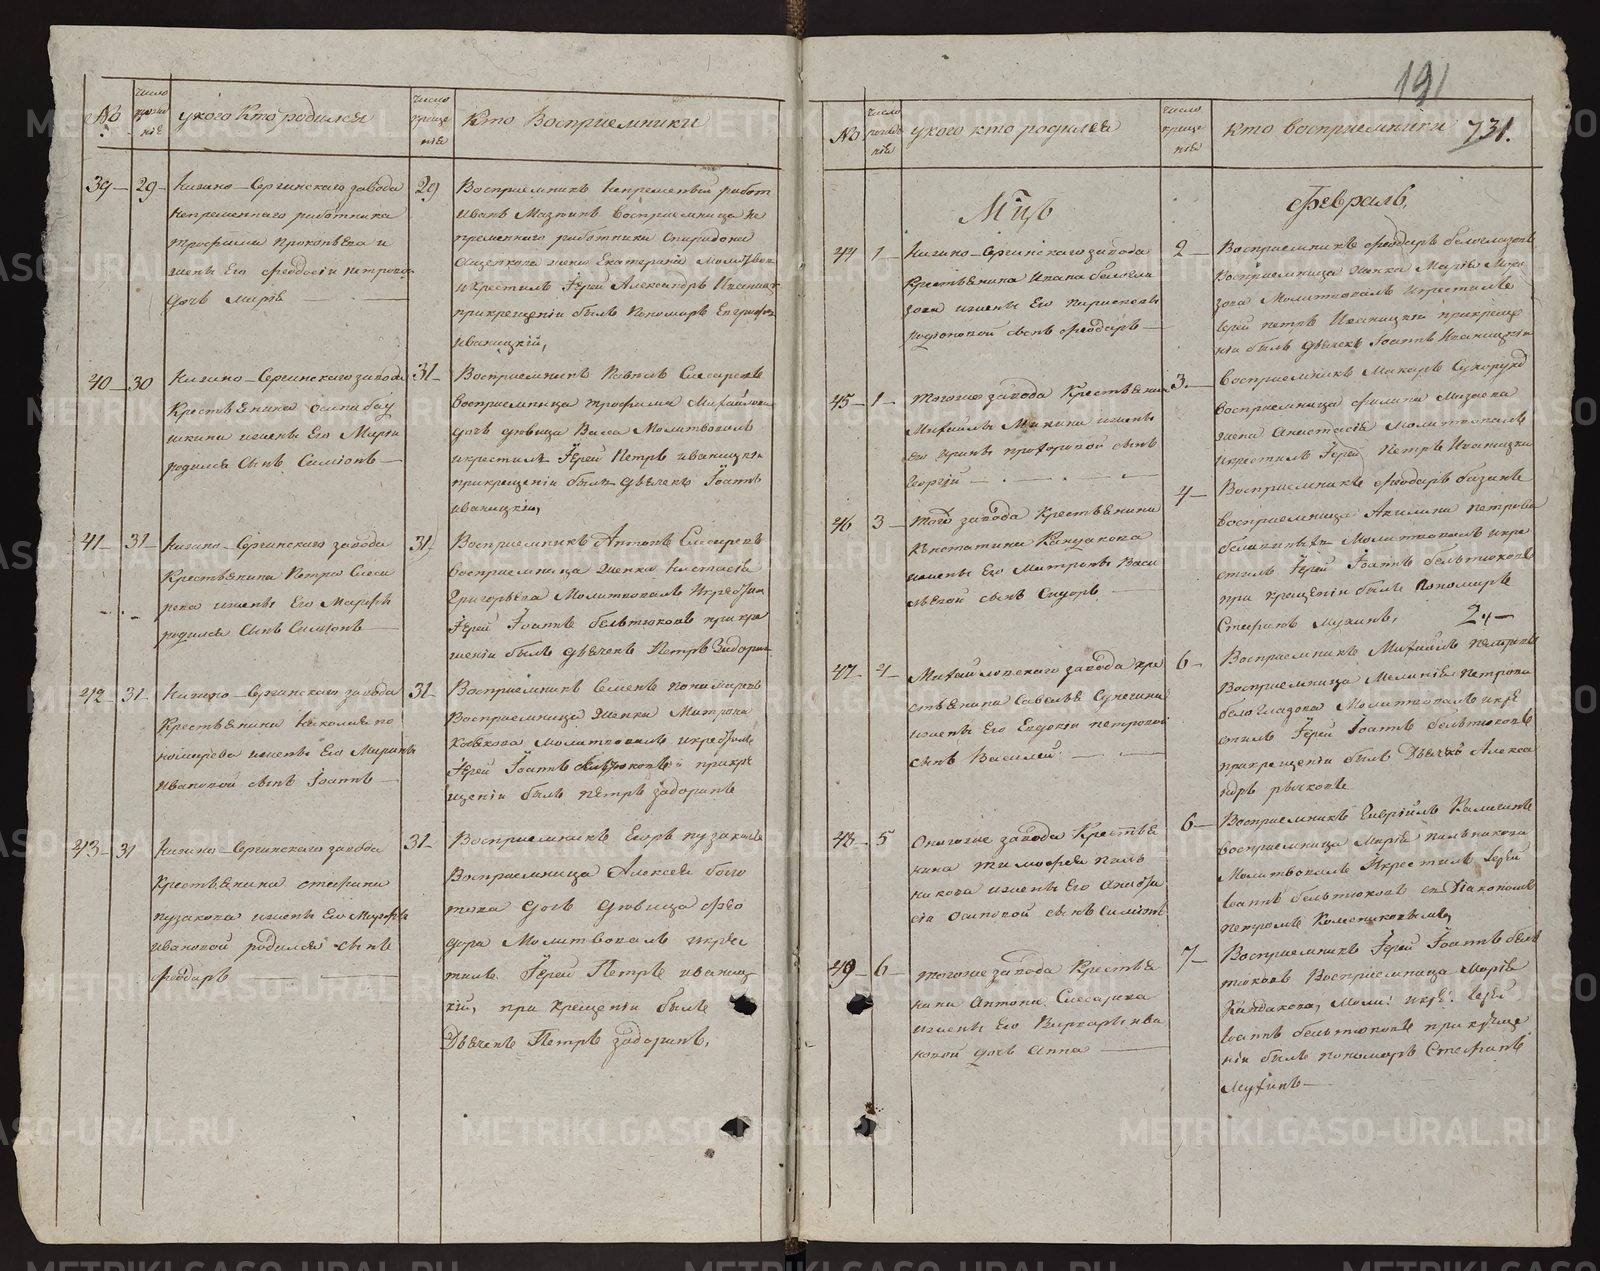 №
число рождения
у кого кто родился
число крещения
Кто Восприемники
39
29
Нижно-Сергинскаго завода
непременнаго работника
Трофима Прокопьева и
жены Его Феодосіи петровой
дочь марія
29
Восприемникъ непременный работ
Иванъ Мазгинъ Восприемница не
пременнаго работника Спиридона
жена Екатерина Молитвов
и крестилъ Іерей Александръ Иваницк
прикрещеніи былъ Пономаръ Евграфъ
иваницкій,
40
30
Нижно-Сергинскаго завода
Крестьянина осипа бау
шкина ижены Его Маріи
родился Сынъ Симіонъ
31
Восприемникъ Павелъ Слесаревъ
восприемница трофима Михайлова
дочь девица Васса Молитвовалъ
икрестилъ Іерей Петръ иваницкі
прикрещеніи былъ дьячекъ Іоаннъ
иваницкій,
41
31
Нижно-Сергинскаго завода
Крестьянина Петра Слеса
рева ижены Его Марфы
родился Сынъ Симіонъ
31
Восприемникъ Антонъ Слесаревъ
восприемница женка Настасія
Григорьева Молитвовалъ Икрести
Іерей Іоаннъ бельтюковъ при кре
щеніи былъ дьячекъ Петръ Задорин
42
31
Нижно-Сергинскаго завода
Крестьянина Николая по
номарева ижены Его Марины
ивановой сынъ Іоаннъ
31
Восприемникъ Семенъ Пономаревъ
Восприемница женка Матрона
Кобякова молитвовалъ икрестилъ
Іерей Іоаннъ бельтюковъ прикре
щеніи былъ петръ задоринъ
43
31
Нижно-Сергинскаго завода
Крестьянина стефана
пузакова ижены Его Марфы
ивановой родился сынъ
Феодоръ
31
Восприемникъ Егоръ пузаковъ
Восприемница Алексея бого
това дочь девица фео
дора Молитвовалъ икрес
тилъ Іерей Петръ иваниц
кій, при крещеніи былъ
Дьячекъ Петръ задоринъ,
191
№
число рожденія
у кого кто родился
число крещенія
кто восприемники
731.
Мцъ
Февраль,
44
1
Нижно-Сергинскаго завода
Крестьянина Ивана белогла
зова ижены Его Парасковьи
родіоновой сынъ феодоръ
2
Восприемникъ феодоръ белоглазовъ
Восприемница женка Марія
зова Молитвовалъ Икрестилъ
іерей петръ Иваницкій прикреще
ніи былъ дьячекъ Іоаннъ Иваницкій
45
1
тогоже завода Крестьянина
Михаила Мякина ижены
Его ирины прохоровой сынъ
Георгій
3
восприемникъ Макаръ Сухоруко
восприемница филипа мизгова
жена Анастасія Молитвовалъ
икрестилъ Іерей Петръ Иваницки
46
3
того завода Крестьянина
Констатина Кандакова
ижены Его Матроны Васи
льевой сынъ Сидоръ
4
Восприемникъ феодоръ базановъ
восприемница Акилина Петрова
Молитвовалъ икре
стилъ Іерей Іоаннъ бельтюковъ
при крещеніи былъ Пономаръ
Стефанъ Мухинъ,
47
4
Михайловскаго завода кре
стьянина Савелья Сунегина
ижены Его Евдокіи петровой
сынъ Василей
6
Восприемникъ Михаилъ
Восприемница Меланія Петрова
белоглазова Молитвовалъ икре
стилъ Іерей Іоаннъ бельтюковъ
прикрещеніи былъ Дьячекъ Алекса
ндръ рычковъ
48
5
Оногоже завода Крестья
нина тимофея паль
никова ижены Его Анаста
сіи Осиповой сынъ Симіонъ
6
Восприемникъ Гавріилъ Калагинъ
восприемница Марія пальникова
Молитвовалъ Икрестилъ Іерей
Іоаннъ бельтюковъ съ Діакономъ
петромъ Колесниковымъ,
49
6
тогоже завода Крестья
нина Антона Слесарева
ижены Его Варвары ива
новой дочь Анна
7
Восприемникъ Іерей Іоаннъ бель
тюковъ Восприемница Марія
Кандакова, Моли: икре: Іерей
Іоаннъ бельтюковъ при креще
ніи былъ пономаръ Стефанъ
Мухинъ